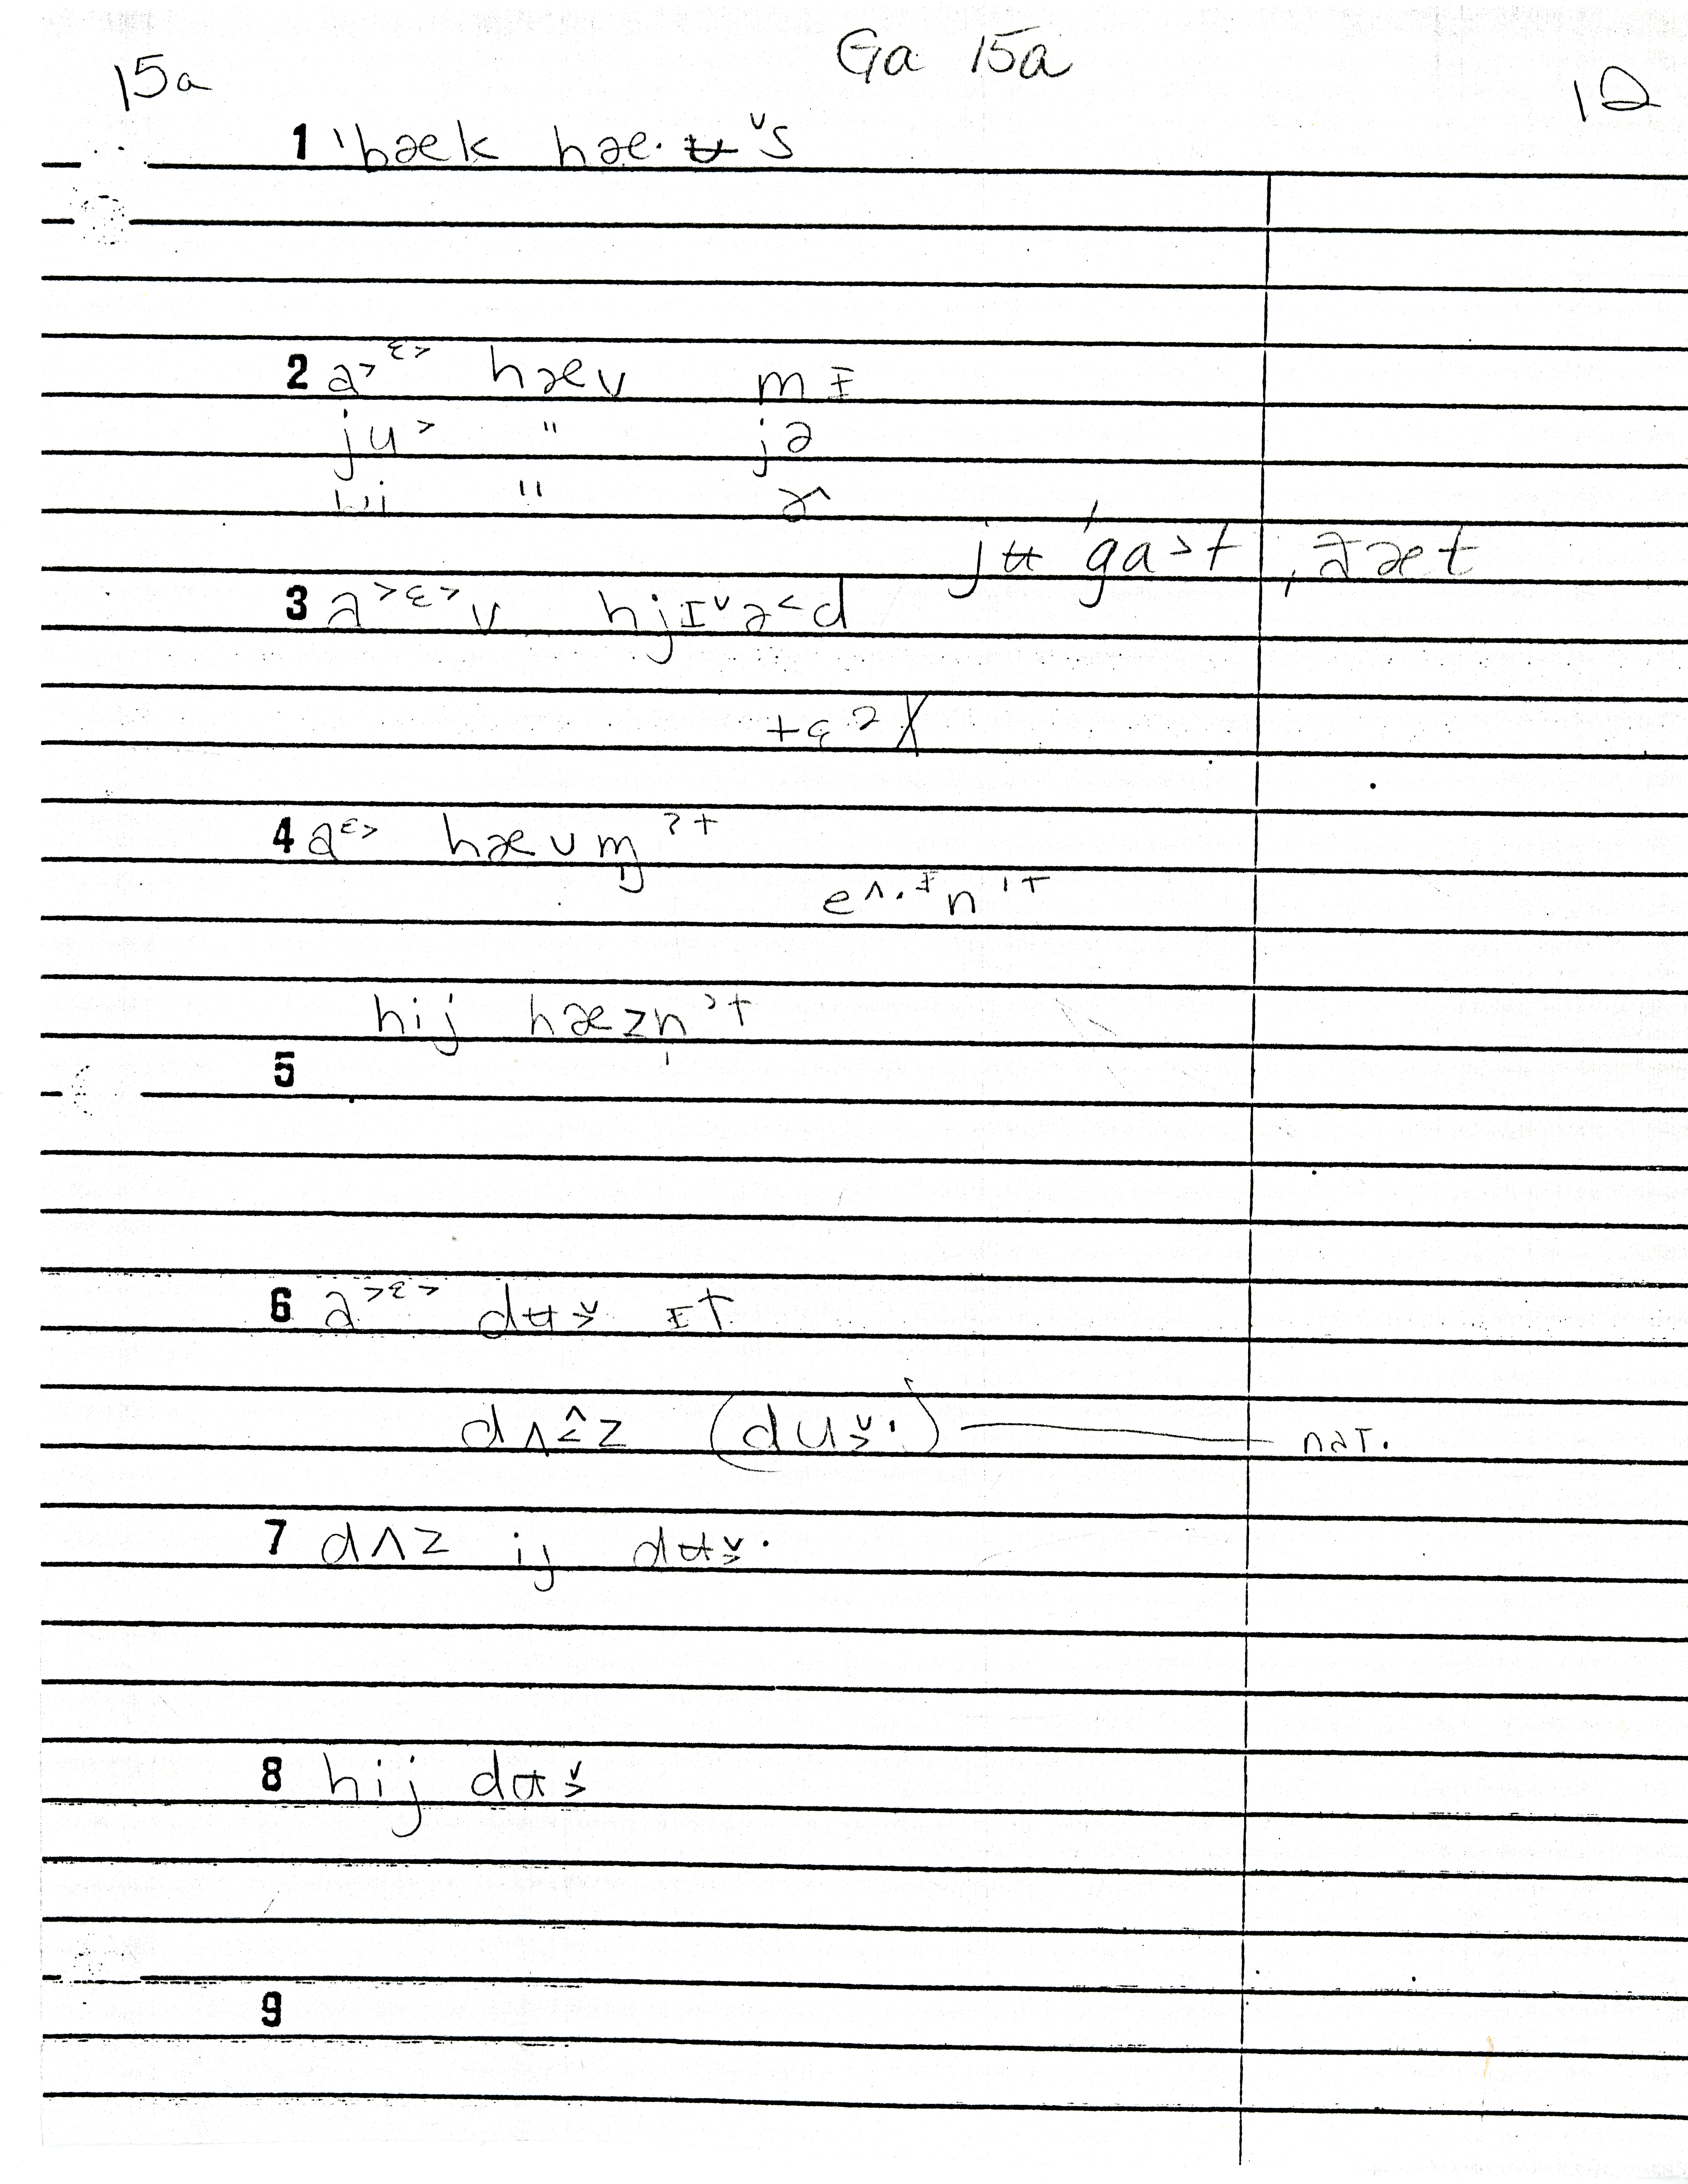 Ga 15a
15a
12
1 ˈbæk hæ·ʉ ˅s
2 a˃ ᵋ˃ hæv mɪ
ju˃ " jə
wi " ɚ
jʉ ˈga˃t ˌðæt
3 a˃ᵋ˃v hjɪ˅ə˂d
4 aᵋ˃ hævm̩ ˀt
e^·ᶦn ˀt
hij hæzn̩ ˀt
5
6 a˃ᵋ˃ dʉ˅˃ ɪt
dʌ^˂z (du˅˃·) nat.
7 dʌz ij dʉ˅˃·
8 hij dʉ˅˃
9